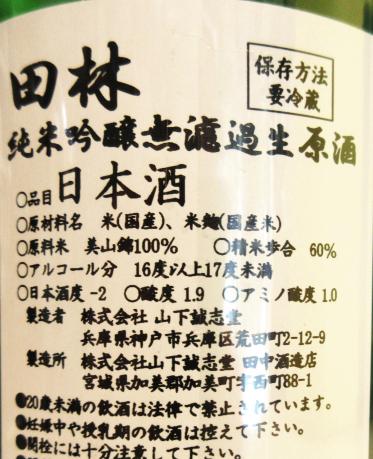 田林
保存方法
要冷蔵
純米吟醸無濾過生原酒
○品目日本酒
○原材料名 米(国産)、米麹(国産米)
○原料米 美山錦100% ○精米歩合 60%
○アルコール分 16度以上17度未満
○日本酒度-2 ○酸度 1.9 ○アミノ酸度 1.0
製造者 株式会社 山下誠志堂
兵庫県神戸市兵庫区荒田町2-12-9
製造所 株式会社山下誠志堂 田中酒造店
宮城県加美郡加美町字西町88-1
●20歳未満の飲酒は法律で禁止されています。
●妊娠中や授乳期の飲酒は控えて下さい。
●開栓には十分注意して下さい。